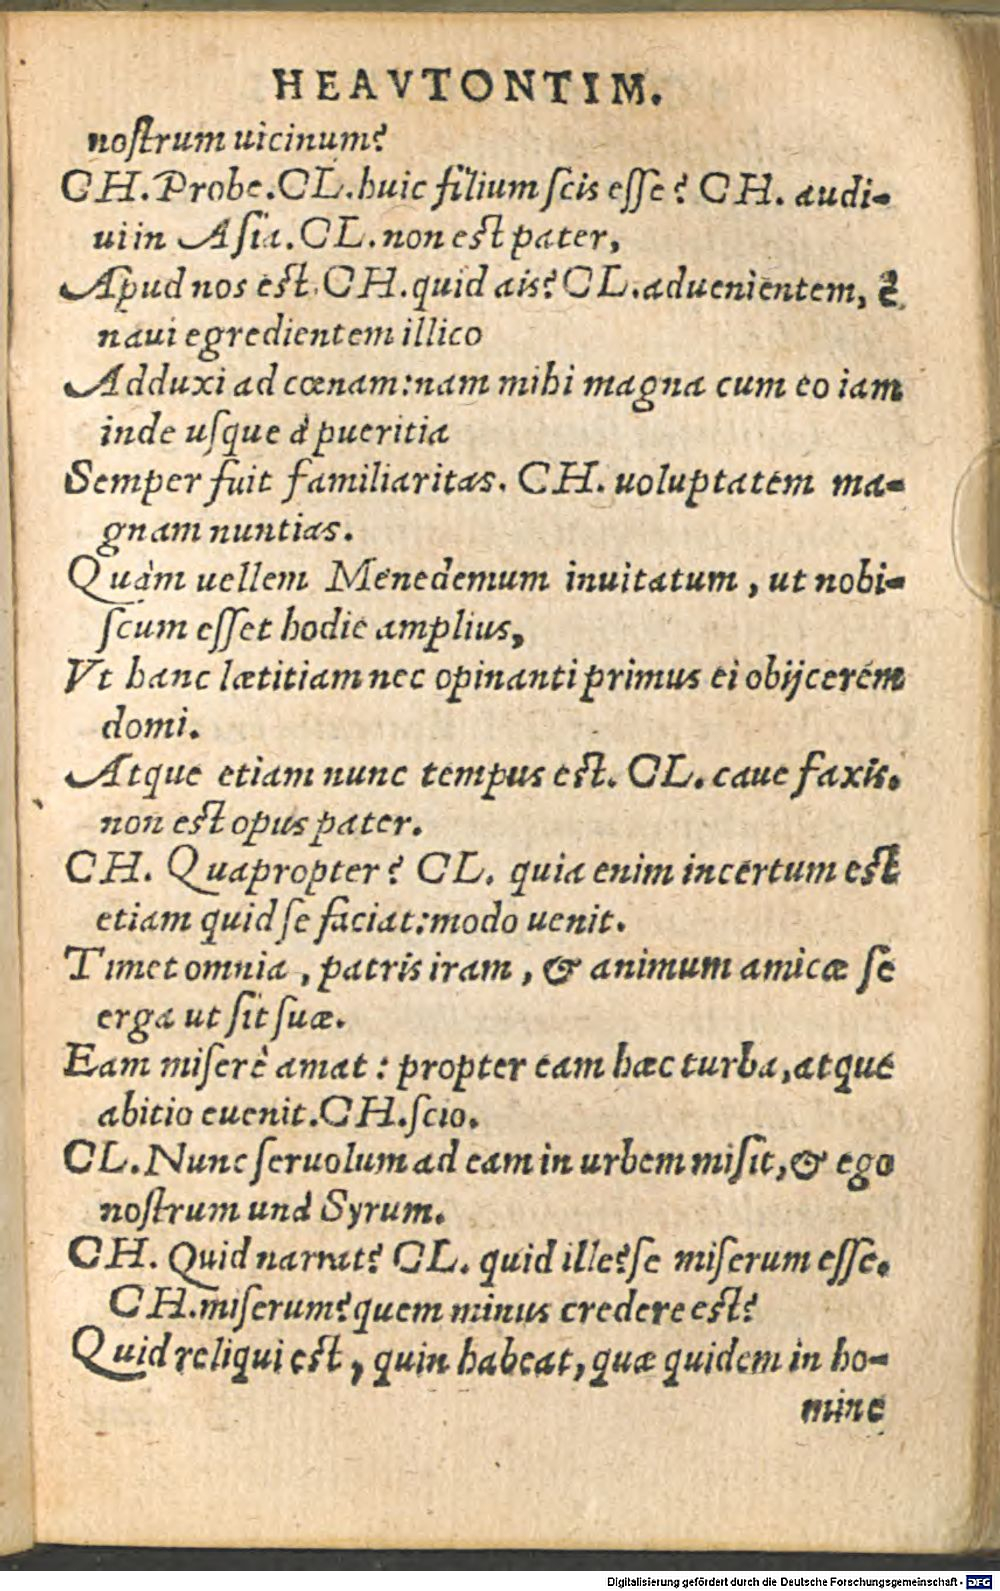 HEAVTONTIM.
noſtrum uicinum?
CH. Probe. CL. huic filium ſcis eſſe? CH. audi-
ui in Aſia. CL. non eſt pater,
Apud nos eſt. CH. quid ais? CL. aduenientem, è
naui egredientem illico
Adduxi ad cœnam: nam mihi magna cum eo iam
inde uſque à pueritia
Semper fuit familiaritas. CH. uoluptatem ma-
gnam nuntias.
Quàm uellem Menedemum inuitatum, ut nobi-
ſcum eſſet hodie amplius,
Vt hanc lætitiam nec opinanti primus ei obijcerem
domi.
Atque etiam nunc tempus eſt. CL. caue faxis.
non eſt opus pater.
CH. Quapropter? CL. quia enim incertum eſt
etiam quid ſe faciat: modo uenit.
Timet omnia, patris iram, & animum amicæ ſe
erga ut ſit ſuæ.
Eam miſerè amat: propter eam hæc turba, atque
abitio euenit. CH. ſcio.
CL. Nunc ſeruolum ad eam in urbem miſit, & ego
noſtrum unà Syrum.
CH. Quid narrat? CL. quid ille? ſe miſerum eſſe.
CH. miſerum? quem minus credere eſt?
Quid reliqui eſt, quin habeat, quæ quidem in ho-
mine
Digitalisierung gefördert durch die Deutsche Forschungsgemeinschaft - DFG